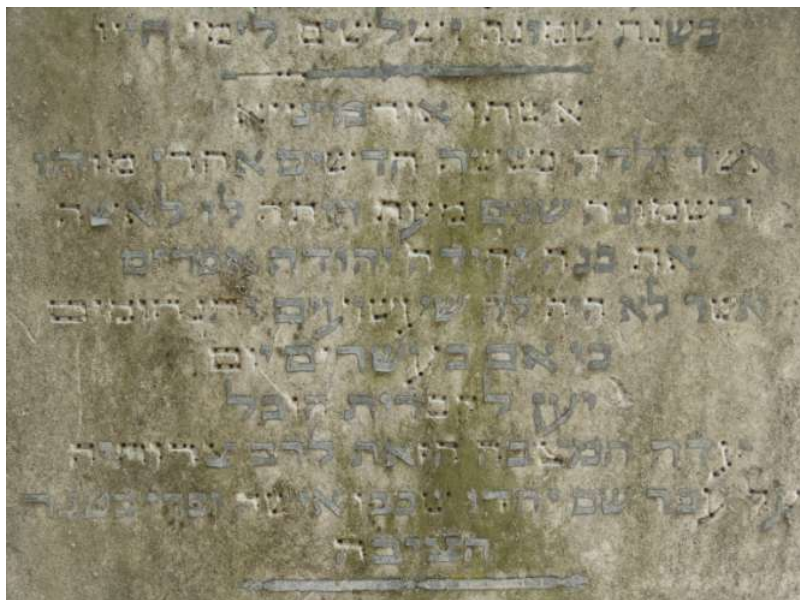 בשנת שמונה ושלשים לימי חייו
אשתו אורפינייא
אשר ילדה תשעה חדשים אחרי מותו
וכשמונה שנים מעת היתה לו לאשה
את בנה יחידה יהודה אפרים
אשר לא היה לה שעשועים ותנחומים
כי אם כעשרים יום
יען לברית
עדה המצבה הזאת לרב
על אבד שם יחדו אישה ופרי בטנה
הציבה